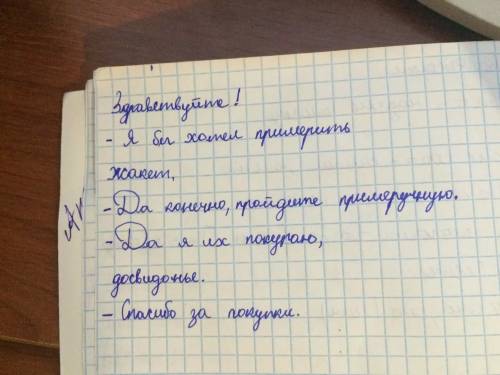 Здравствуйте!
- Я бы хотел примерить
жакет,
- Да конечно, пройдите примеручную.
- Да я их покупаю,
досвиданье.
- Спасибо за покупки.